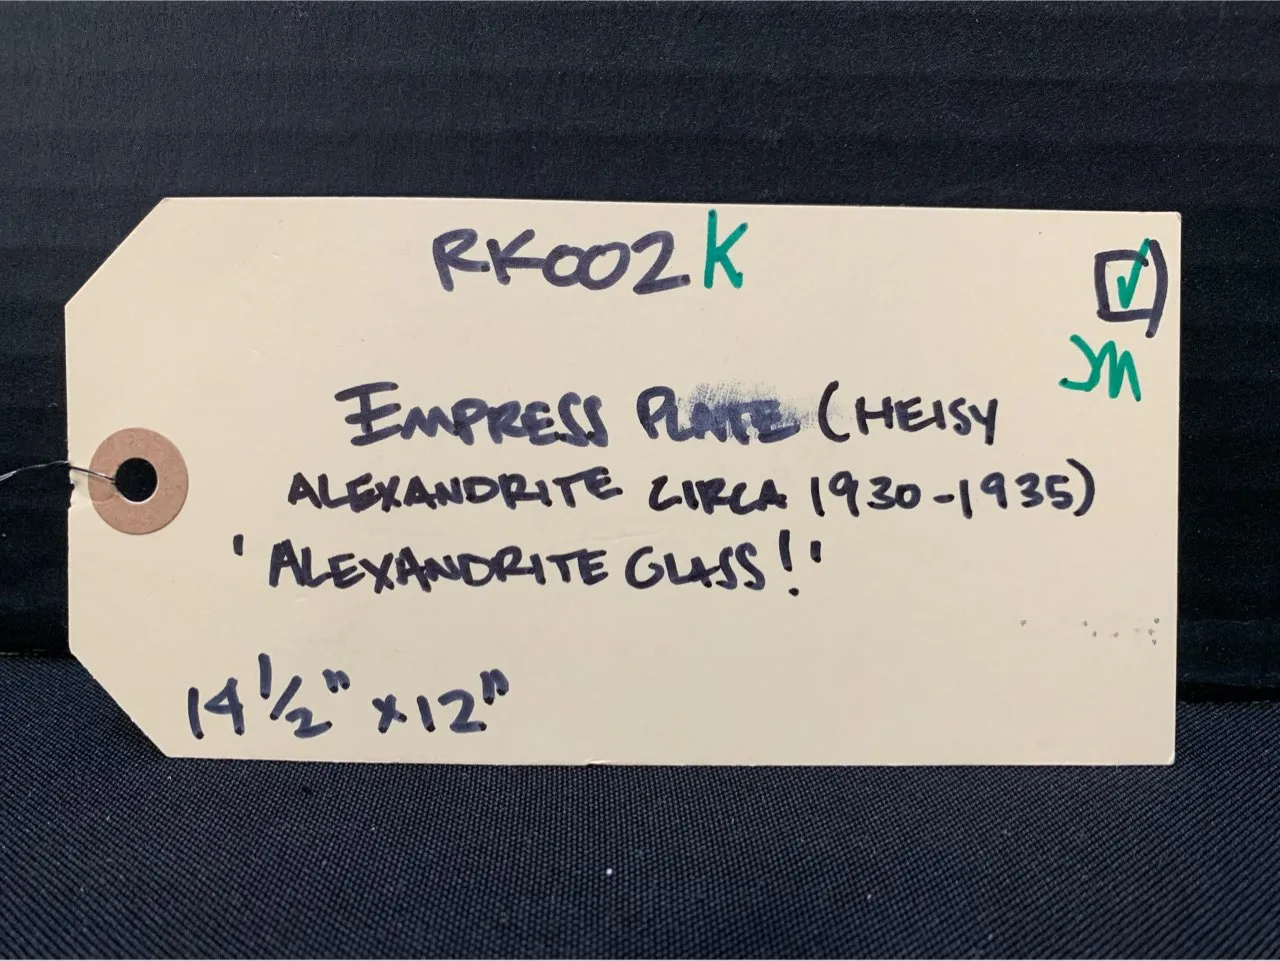 RK002K
JM
EMPRESS PLATE (HEISY
ALEXANDRITE CIRCA 1930-1935)
'ALEXANDRITE GLASS!'
14 1/2" x 12"